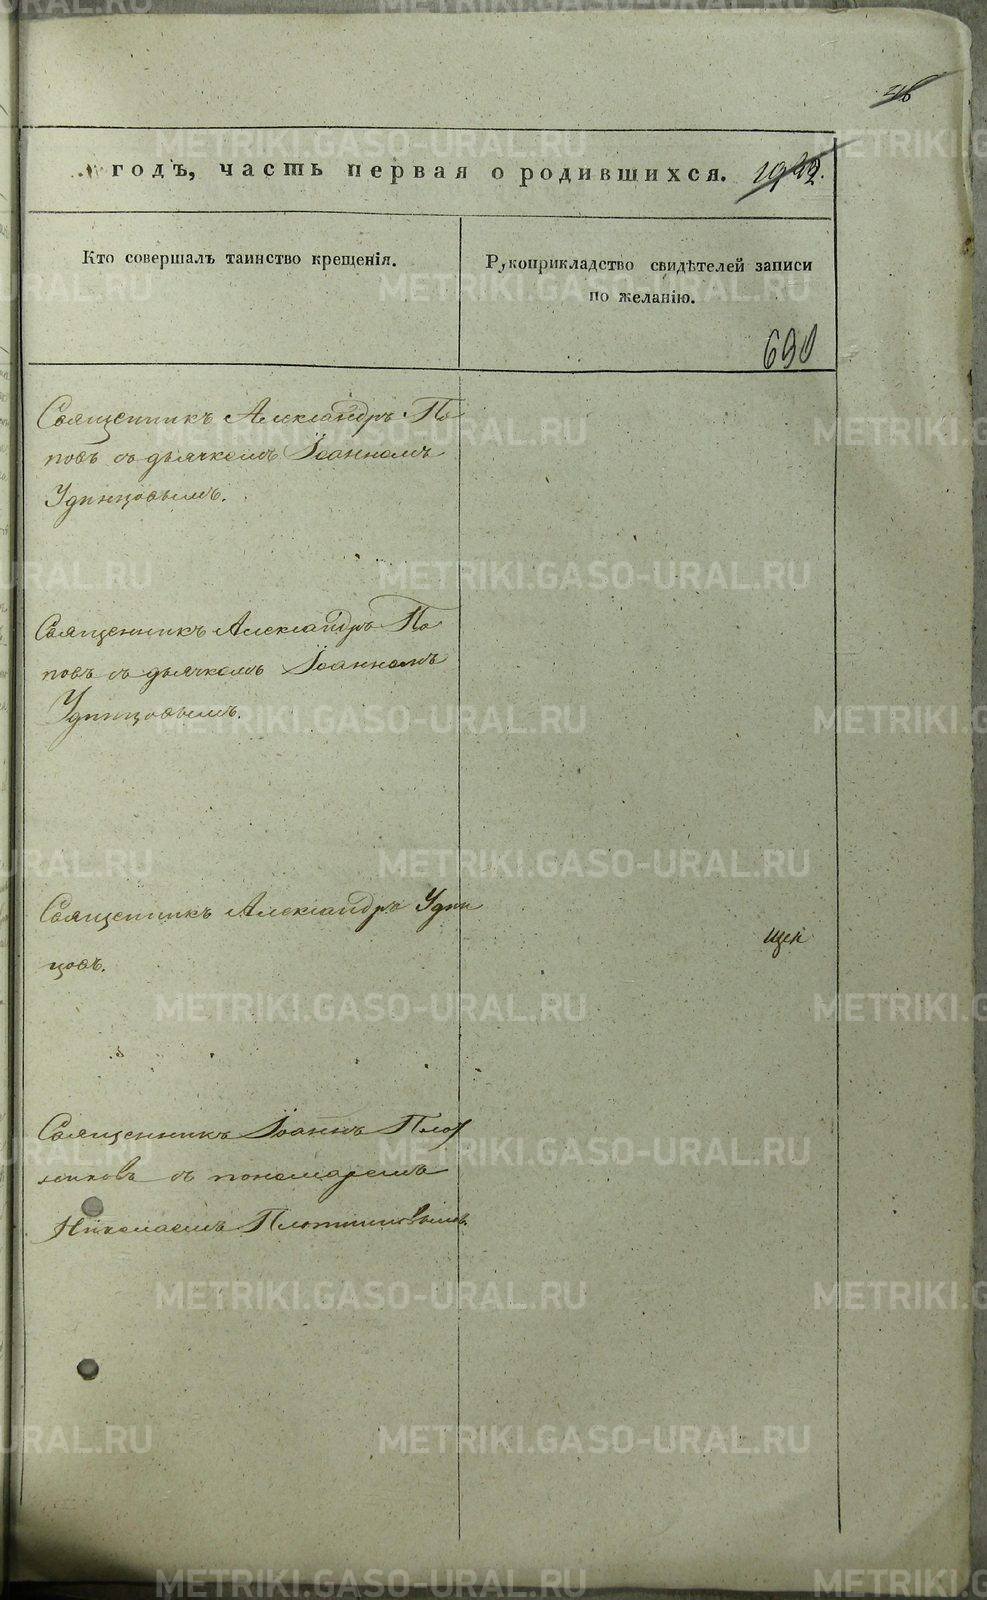 годъ, часть первая о родившихся.
Кто совершалъ таинство крещенія.
Рукоприкладство свидѣтелей записи
по желанію.
690
Священникъ Александръ По
повъ съ дьячкомъ Іоанномъ
Удинцовымъ.
Священникъ Александръ По
повъ съ дьячкомъ Іоанномъ
Удинцовымъ.
Священникъ Александръ Удин
цовъ.
Священникъ Іоаннъ Плот
никовъ съ пономаремъ
Николаемъ Плотниковымъ.
METRIKI.GASO-URAL.RU